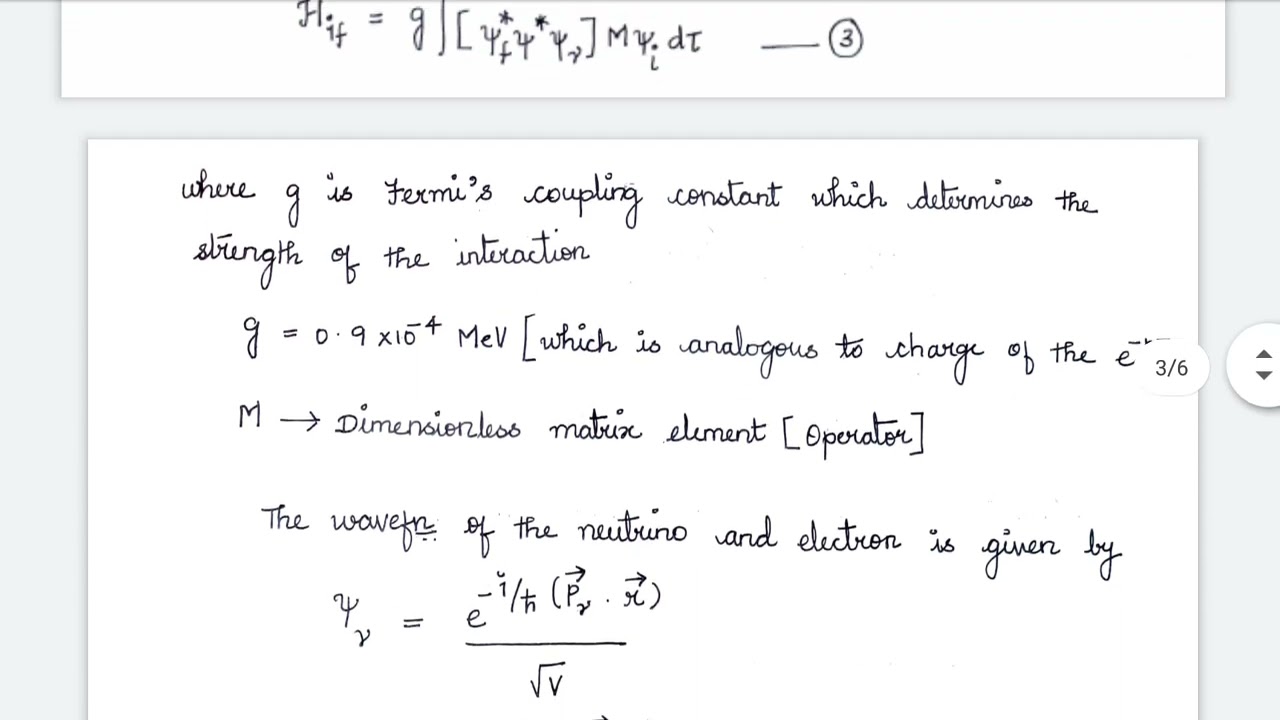 H_if = g∫[ψ_f* ψ* ψ_ν] M ψ_i dτ —— ③
where g is Fermi's coupling constant which determines the
strength of the interaction
g = 0.9 ×10⁻⁴ MeV [which is analogous to charge of the e⁻
3/6
M → Dimensionless matrix element [Operator]
The wavefn of the neutrino and electron is given by
ψ_ν = e^{-i/ħ (P⃗_ν . r⃗)}
√V